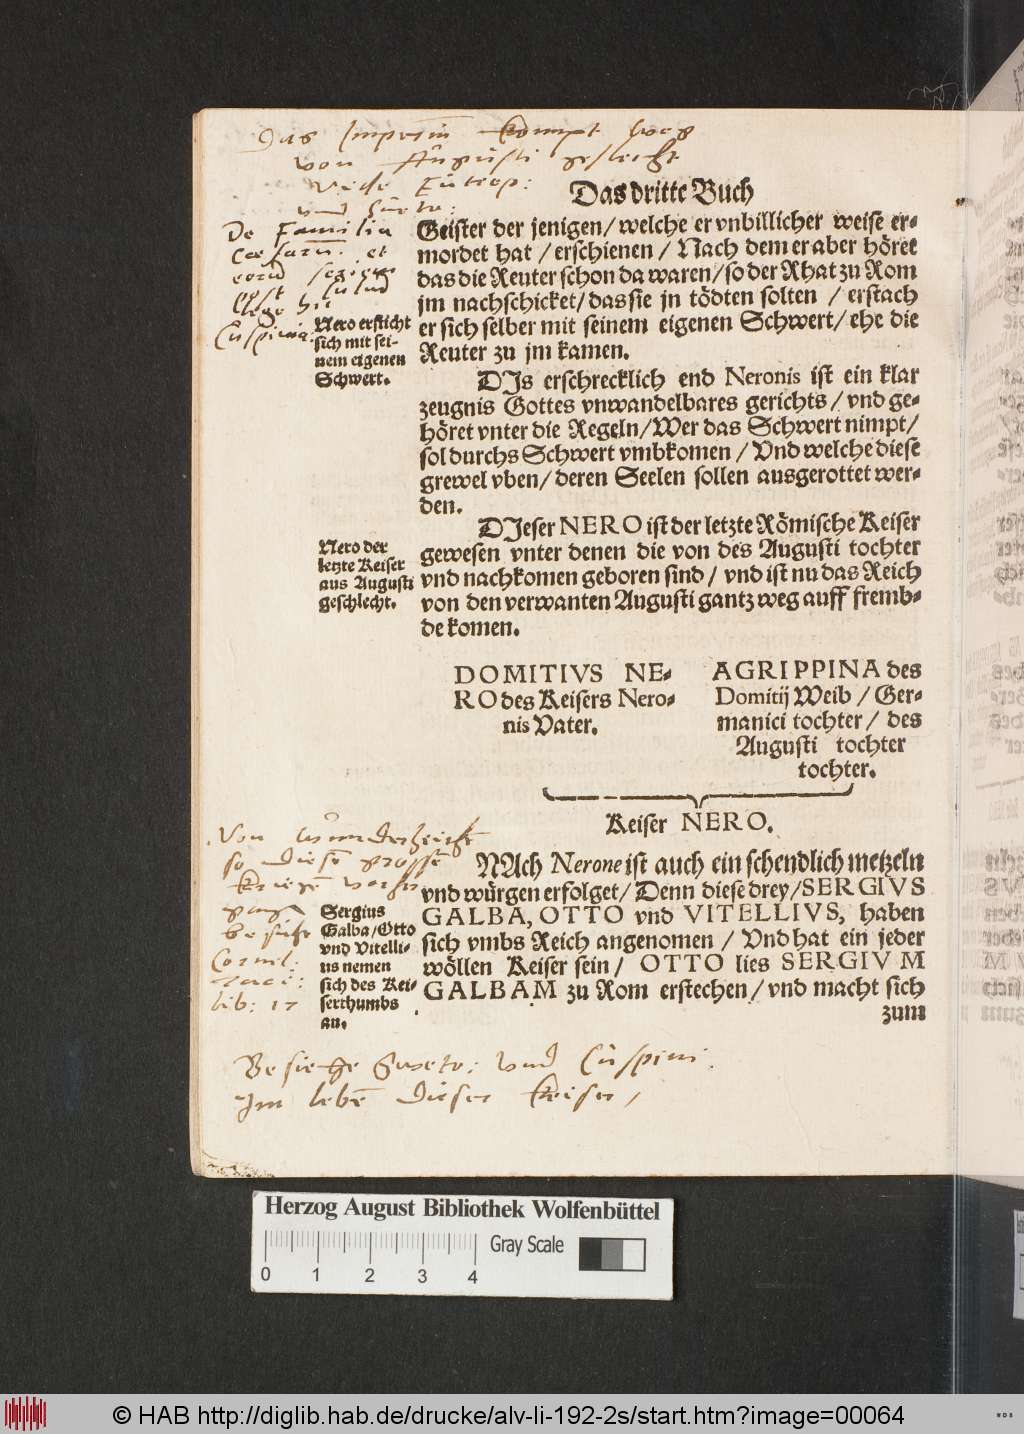 Das Imperiū kompt weg
von Augusti geschlecht
vide Eutrop:
und Sueto:
De Familia
Caesarū. et
lege hic
Cuspinia:
Das dritte Buch
Geister der jenigen/ welche er vnbillicher weise er⸗
mordet hat / erschienen / Nach dem er aber höret
das die Reuter schon da waren/ so der Rhat zu Rom
jm nachschicket/ das sie jn tödten solten / erstach
er sich selber mit seinem eigenen Schwert/ ehe die
Reuter zu jm kamen.
Nero ersticht
sich mit sei-
nem eigenen
Schwert.
DIs erschrecklich end Neronis ist ein klar
zeugnis Gottes vnwandelbares gerichts / vnd ge⸗
höret vnter die Regeln/ Wer das Schwert nimpt/
sol durchs Schwert vmbkomen / Vnd welche diese
grewel vben/ deren Seelen sollen ausgerottet wer⸗
den.
DIeser NERO ist der letzte Römische Keiser
gewesen vnter denen die von des Augusti tochter
vnd nachkomen geboren sind / vnd ist nu das Reich
von den verwanten Augusti gantz weg auff fremb⸗
de komen.
Nero der
letzte Keiser
aus Augusti
geschlecht.
DOMITIVS NE⸗
RO des Keisers Nero⸗
nis Vater.
AGRIPPINA des
Domitij Weib / Ger⸗
manici tochter / des
Augusti tochter
tochter.
Keiser NERO.
Von wunderzeichē
so diesē grossē
kriegē vorher
gangē
besiehe
Cornel:
Taci:
lib: 17
NAch Nerone ist auch ein schendlich metzeln
vnd würgen erfolget/ Denn diese drey/ SERGIVS
GALBA, OTTO vnd VITELLIVS, haben
sich vmbs Reich angenomen / Vnd hat ein jeder
wöllen Keiser sein/ OTTO lies SERGIVM
GALBAM zu Rom erstechen/ vnd macht sich
zum
Sergius
Galba/ Otto
vnd Vitelli-
us nemen
sich des Kei-
serthumbs
an.
Besiehe Sueto: und Cuspini.
Im lebē dieser Keiser/
Herzog August Bibliothek Wolfenbüttel
Gray Scale
0 1 2 3 4
© HAB http://diglib.hab.de/drucke/alv-li-192-2s/start.htm?image=00064